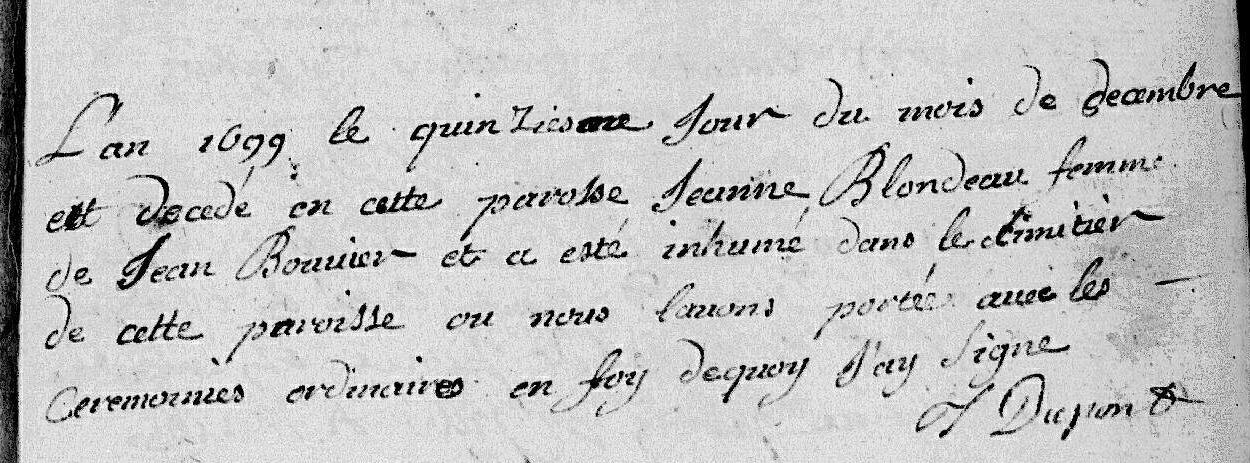 Lan 1699 le quinziesme Jour du mois de decembre
est decedé en cette paroisse Jeanne Blondeau femme
de Jean Bouuier et a esté inhumé dans le cimitier
de cette paroisse ou nous lauons portée auec les
Ceremonies ordinaires en foy dequoy J'ay signe
J Dupont